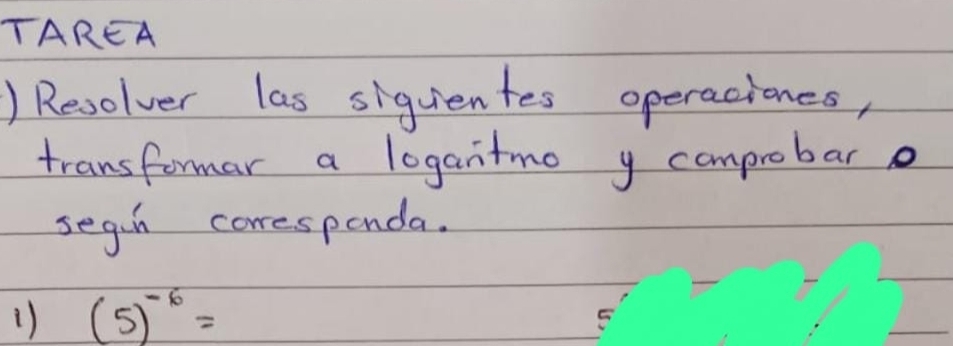 TAREA
) Resolver las siguientes operaciones,
transformar a logaritmo y comprobar o
según corresponda.
1) (5)⁻⁶ = 5